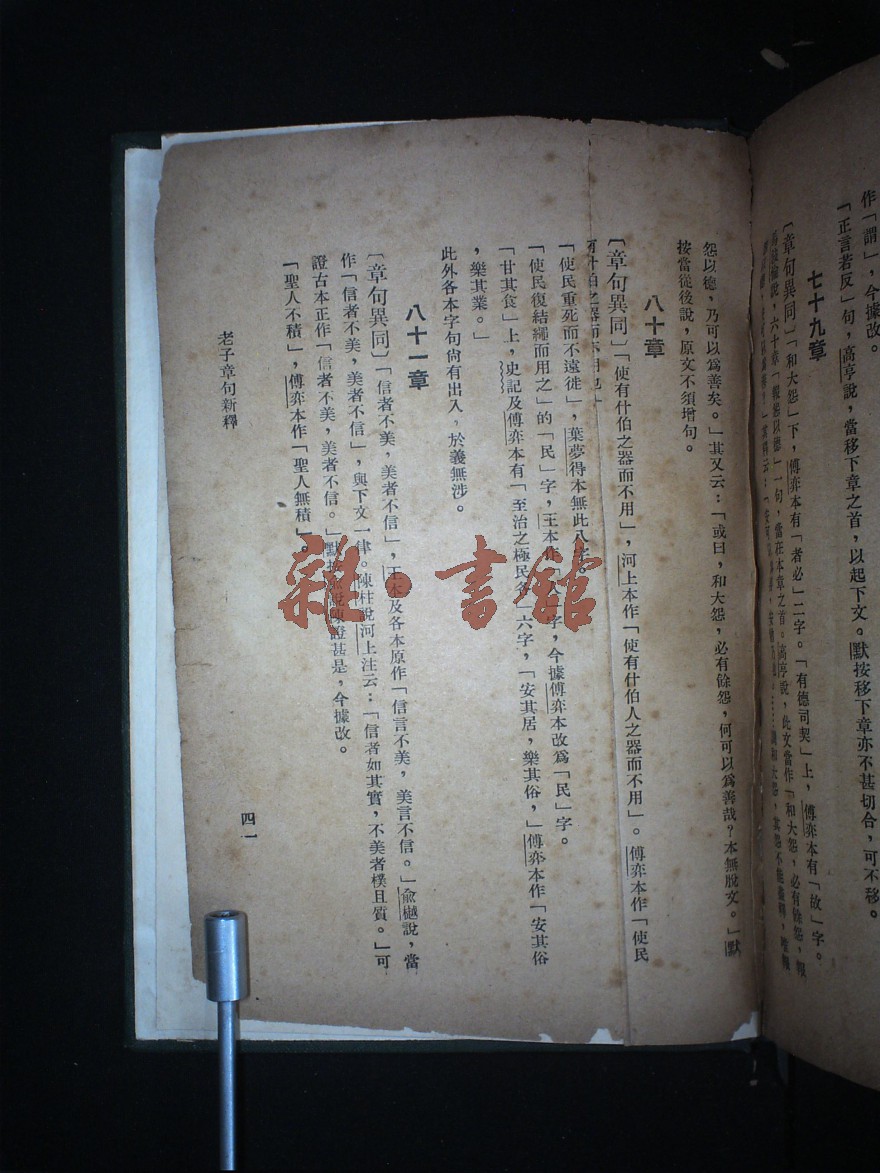 作「謂」，今據改。
「正言若反」句，高亨說，當移下章之首，以起下文。默按移下章亦不甚切合，可不移。
七十九章
〔章句異同〕「和大怨」下，傅奕本有「者必」二字。「有德司契」上，傅奕本有「故」字。
六十章「報怨以德」一句，當在本章之首。高亨說，此文當作「和大怨，必有餘怨，報
怨以德，乃可以爲善矣。」其又云：「或曰，和大怨，必有餘怨，何可以爲善哉？本無脫文。」默
按當從後說，原文不須增句。
八十章
〔章句異同〕「使有什伯之器而不用」，河上本作「使有什伯人之器而不用」。傅奕本作「使民
有什伯之器而不用也」
「使民重死而不遠徙」，葉夢得本無此八字。
「使民復結繩而用之」的「民」字，王本作「人」字，今據傅奕本改爲「民」字。
「甘其食」上，史記及傅奕本有「至治之極民各」六字，「安其居，樂其俗，」傅奕本作「安其俗
，樂其業。」
此外各本字句尙有出入，於義無涉。
八十一章
〔章句異同〕「信者不美，美者不信」，王本及各本原作「信言不美，美言不信。」兪樾說，當
作「信者不美，美者不信」，與下文一律。陳柱說河上注云：「信者如其實，不美者樸且質。」可
證古本正作「信者不美，美者不信。」默按證甚是，今據改。
「聖人不積」，傅奕本作「聖人無積」。
老子章句新釋
四一
雜·書館